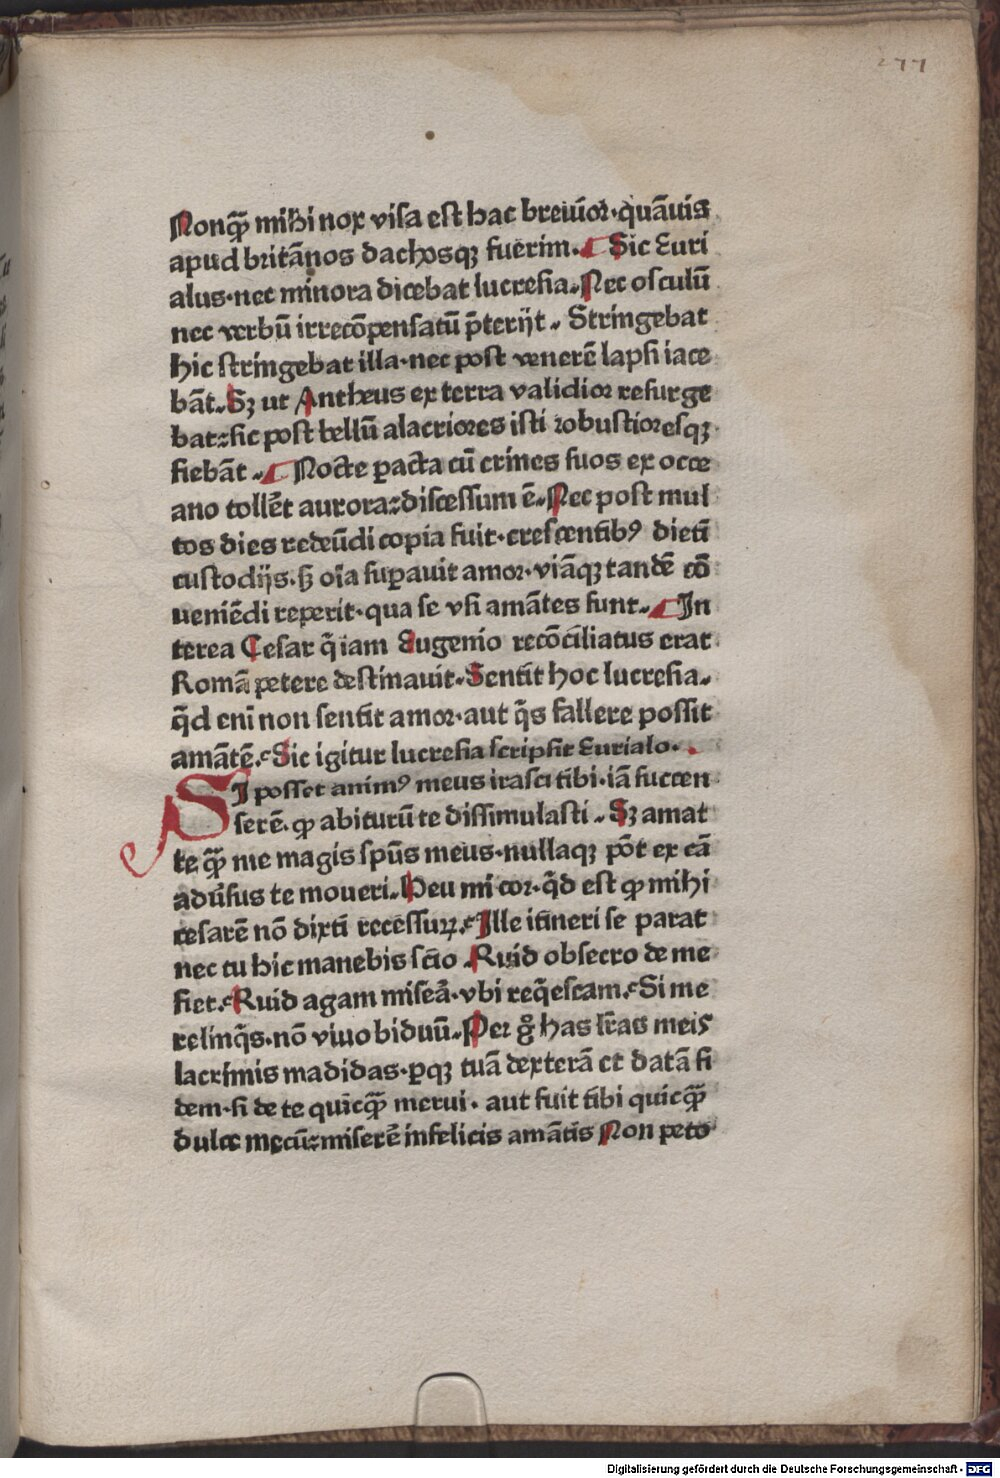 277
Nonqꝫ mihi nox visa est hac breuior·quāuis
apud britānos dachosqꝫ fuerim. Sic Euri
alus·nec minora dicebat lucresia. Nec osculū
nec verbū irrecōpensatū p̄terijt. Stringebat
hic stringebat illa·nec post venerē lapsi iace
bāt. Sꝫ ut Antheus ex terra validior resurge
bat:sic post bellū alacriores isti robustioresqꝫ
fiebāt. Nocte ꝑacta cū crines suos ex occe
ano tollēt aurora:discessum ē. Nec post mul
tos dies redeūdi copia fuit·crescentibꝰ dieti
custodijs. sꝫ oīa suꝑauit amor·viāqꝫ tandē cō
ueniēdi reperit·qua se vsi amātes sunt. In
terea Cesar q̄ iam Eugenio recōciliatus erat
Romā petere destinauit. Sentit hoc lucresia.
q̄d eni non sentit amor·aut q̄s fallere possit
amātē. Sic igitur lucresia scripsit Eurialo.
SI posset animꝰ meus irasci tibi·iā succen
serē·ꝙ abiturū te dissimulasti. Sꝫ amat
te qꝫ me magis spūs meus·nullaqꝫ pōt ex cā
aduersus te moueri. Heu mi cor·q̄d est ꝙ mihi
cesarē nō dixti recessuꝝ. Ille itineri se parat
nec tu hic manebis scio. Quid obsecro de me
fiet. Quid agam miseā·vbi req̄escam. Si me
relinq̄s·nō viuo biduū. Per g̊ has lr̄as meis
lacrimis madidas·ꝑqꝫ tuā dexterā et datā fi
dem·si de te quicqꝫ merui· aut fuit tibi quicqꝫ
dulce mecū:miserē infelicis amātis Non peto
Digitalisierung gefördert durch die Deutsche Forschungsgemeinschaft - DFG